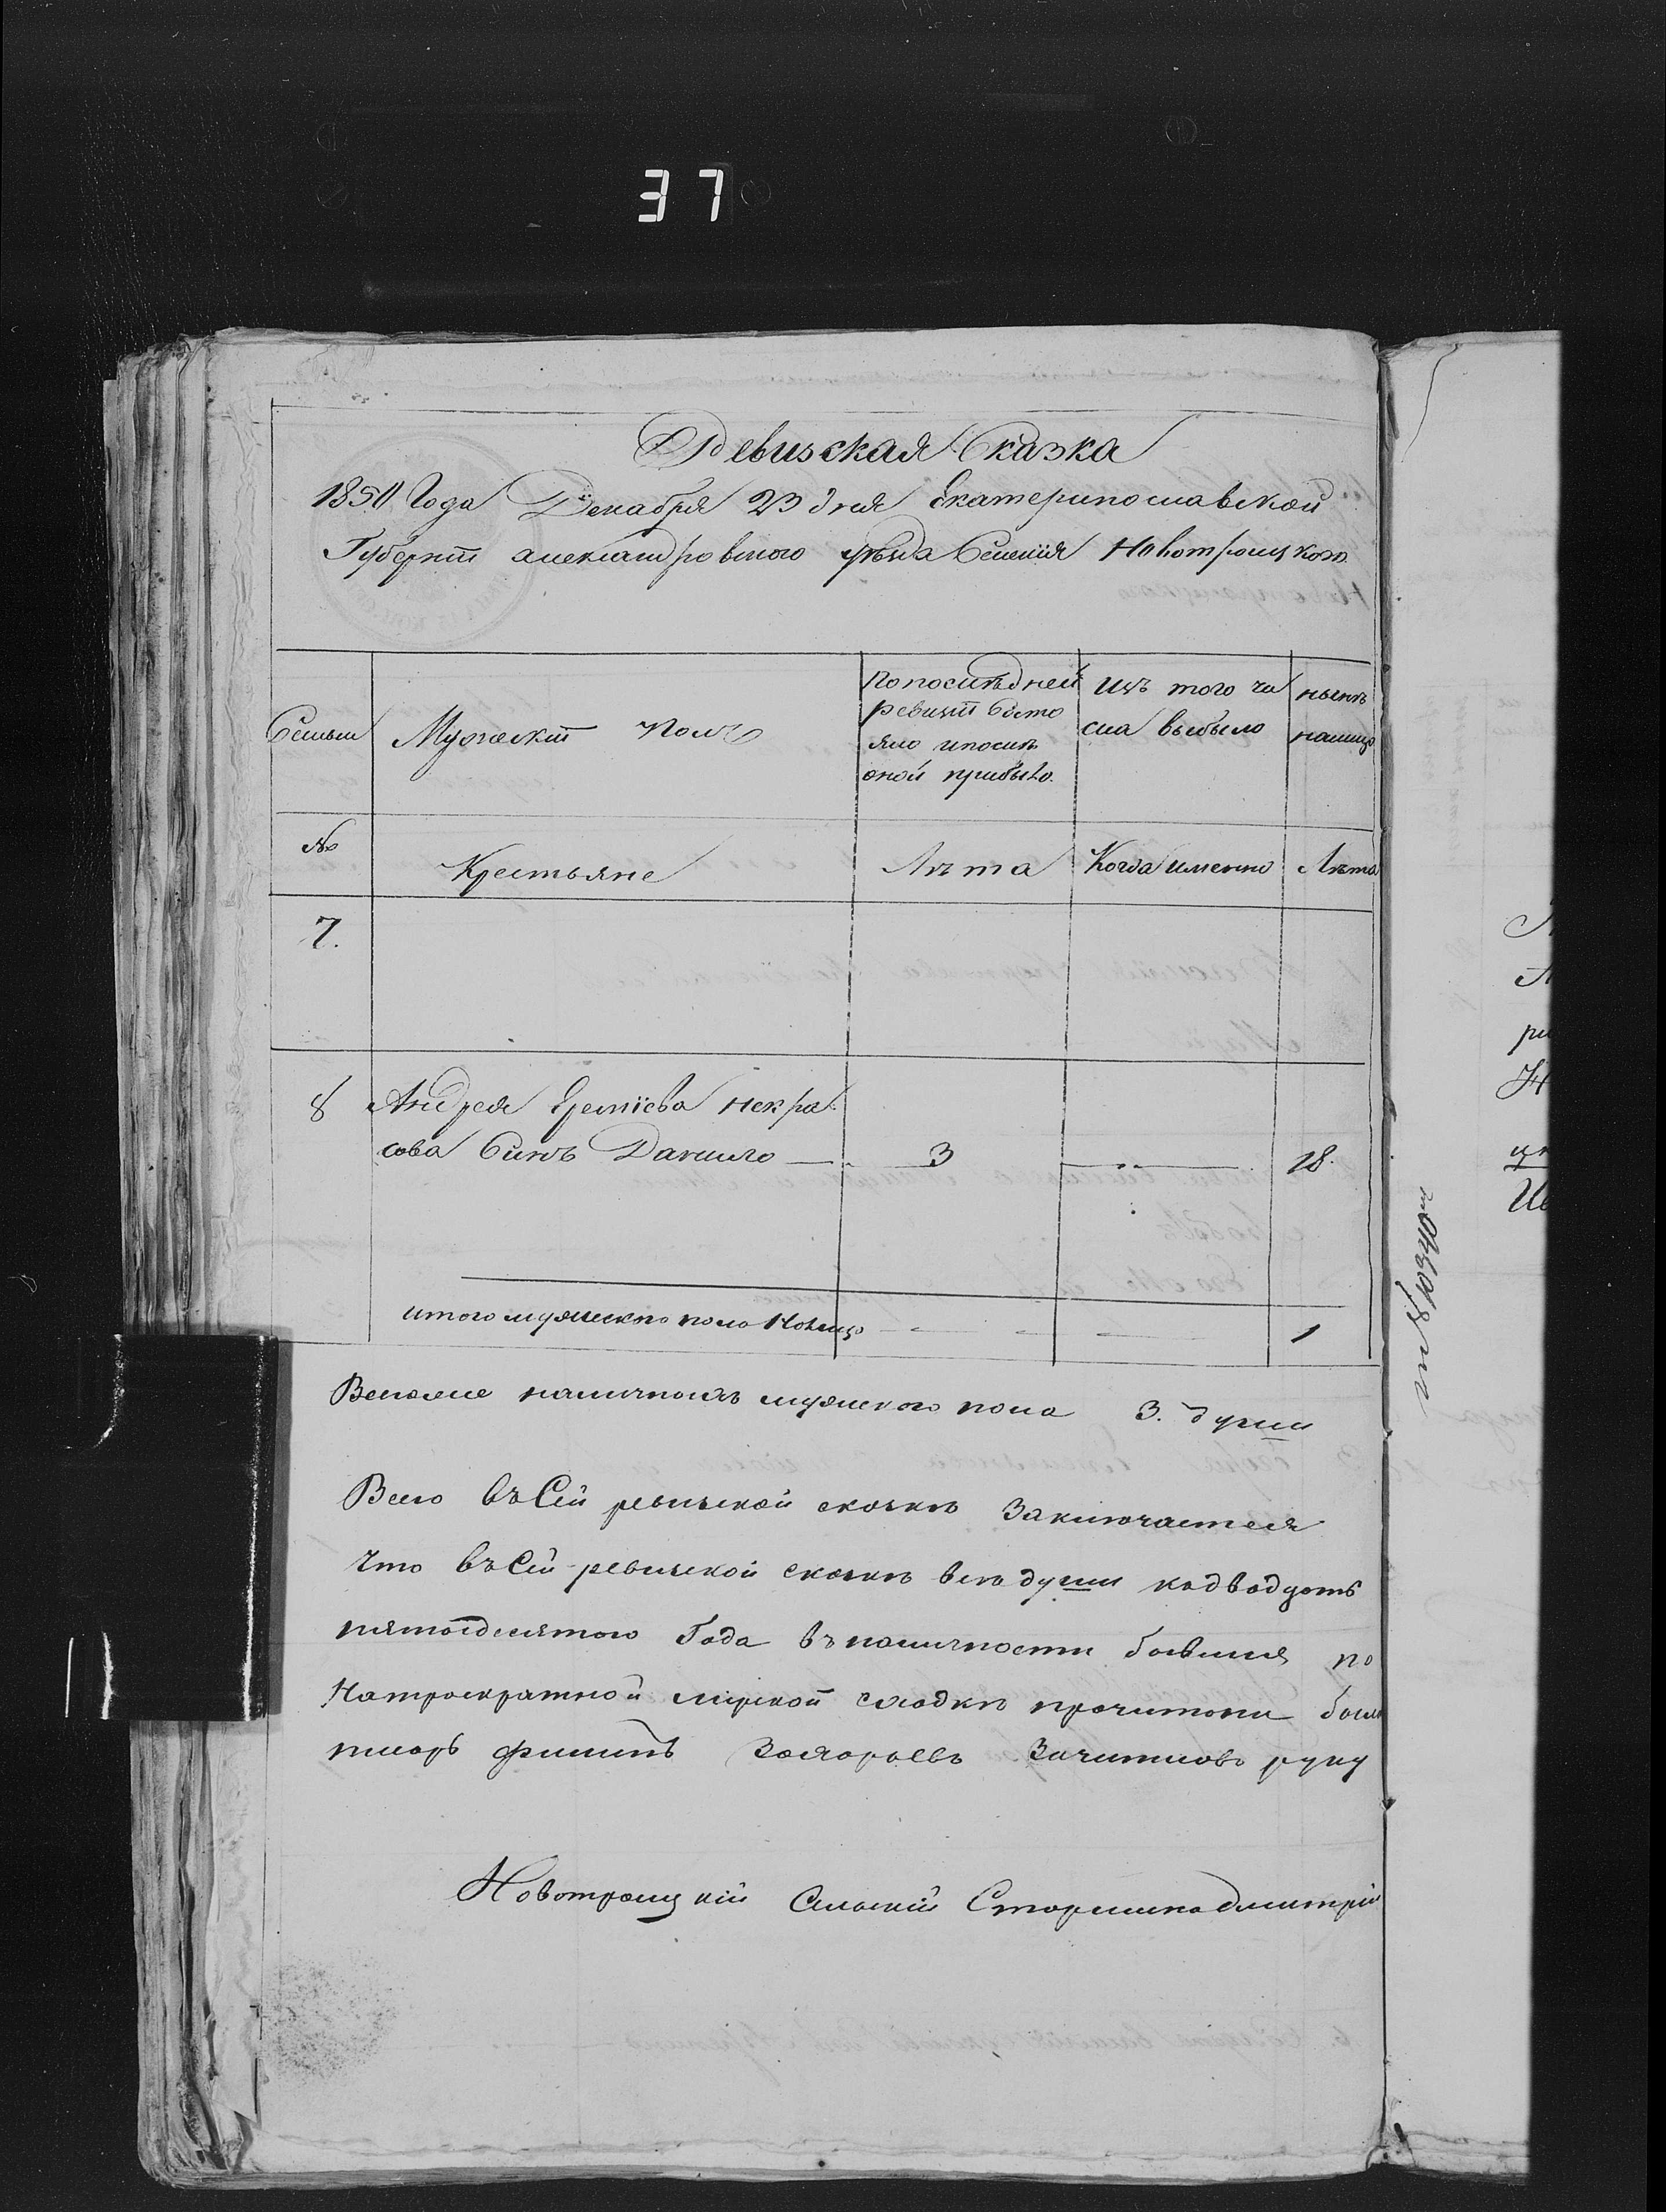 37
Ревизская Сказка
1850 Года Декабря 23 дня Екатеринославской
Губернiи александровского уезда Селенiя Новотроицкого
Семьи
Мужескiй Полъ
По последней
ревизiи состо
яло и после
оной прибыло.
Изъ того чи
сла выбыло
ныне
налицо
№
Крестьяне
Лѣта
Когда именно
Лѣта
7.
8 Андрея Еремiева Некра
сова Синъ Данило 3 18.
итого мужеска пола Налицо 1
Вселение наличныхъ мужеского пола 3. души
Всего въ Сей ревизской сказке Заключается
что въ Сей ревизской сказке все души
пятогдесятого Года въ наличности бывшия по
Натроекратной мирской сходке прочитаны были
писарь филипъ руку
Новотроицкiй Сельскiй Старшина дмитрiй